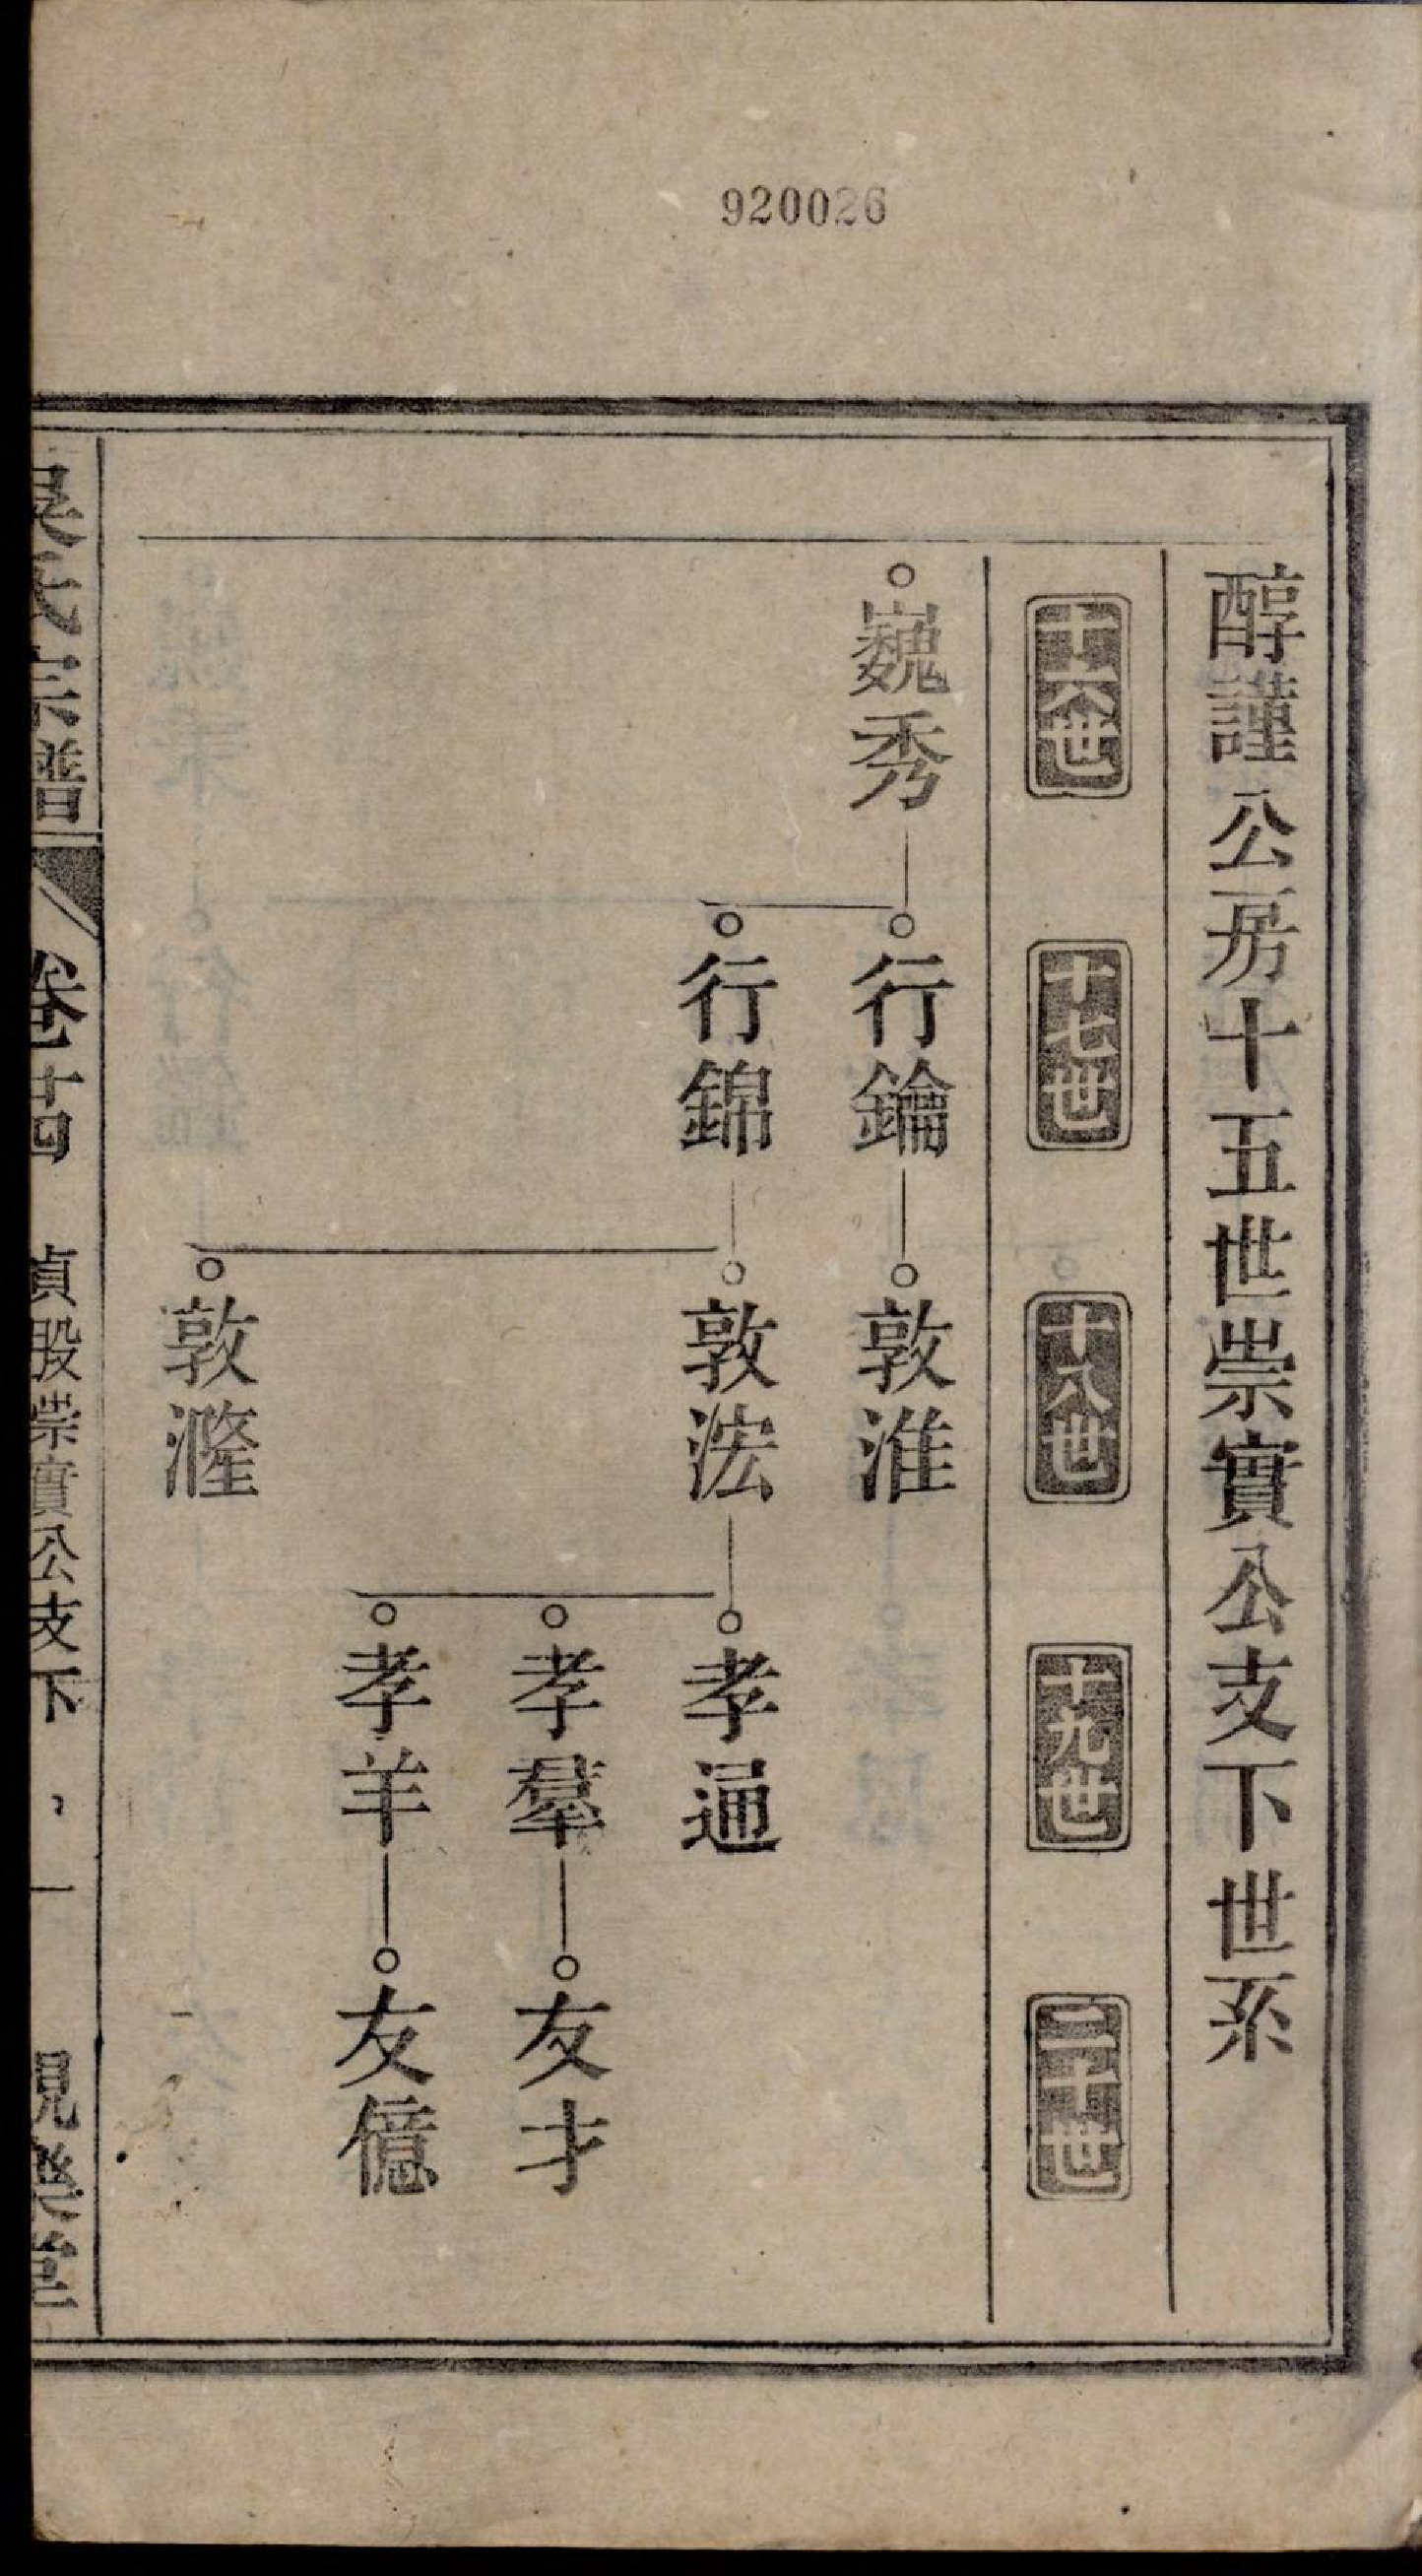 920026
醇謹公房十五世崇實公支下世系
十六世
十七世
十八世
十九世
二十世
巍秀
行鑰
敦淮
行錦
敦浤
孝通
孝羣
友才
孝羊
友億
敦漋
吳氏宗譜
卷廿四
貞股崇實公支下
一